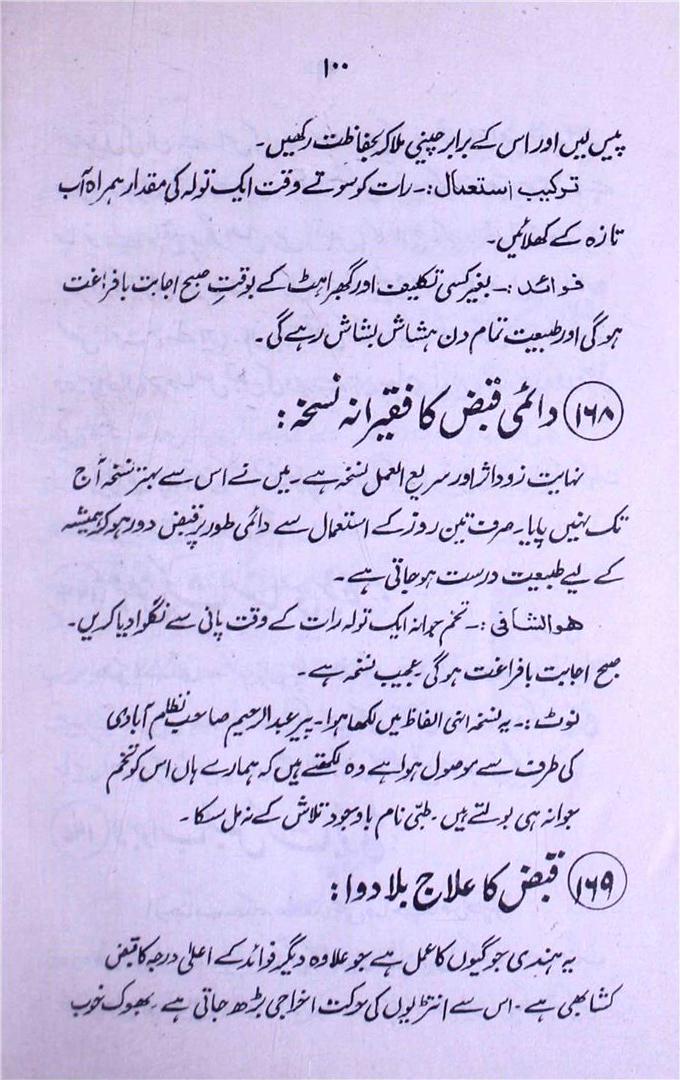 ۱۰۰
پیس لیں اور اس کے برابر چینی ملا کر بحفاظت رکھیں۔
ترکیب استعمال :۔ رات کو سوتے وقت ایک تولہ کی مقدار ہمراہ آب
تازہ کے کھلائیں۔
فوائد :۔ بغیر کسی تکلیف اور گھبراہٹ کے بوقتِ صبح اجابت بافراغت
ہوگی اور طبیعت تمام دن ہشاش بشاش رہے گی۔
۱۶۸ دائمی قبض کا فقیرانہ نسخہ :
نہایت زود اثر اور سریع العمل نسخہ ہے۔ میں نے اس سے بہتر نسخہ آج
تک نہیں پایا۔ صرف تین روز کے استعمال سے دائمی طور پر قبض دور ہو کر ہمیشہ
کے لیے طبیعت درست ہو جاتی ہے۔
ھوالشافی :۔ تخم جوانہ ایک تولہ رات کے وقت پانی سے نگلوا دیا کریں۔
صبح اجابت بافراغت ہوگی۔ عجیب نسخہ ہے۔
نوٹ :۔ یہ نسخہ انہی الفاظ میں لکھا ہوا۔ پیر عبدالرحیم صاحب نظام آبادی
کی طرف سے موصول ہوا ہے وہ لکھتے ہیں کہ ہمارے ہاں اس کو تخم
جوانہ ہی بولتے ہیں۔ طبّی نام باوجود تلاش کے نہ مل سکا۔
۱۶۹ قبض کا علاج بلا دوا :
یہ ہندی جوگیوں کا عمل ہے جو علاوہ دیگر فوائد کے اعلیٰ درجہ کا قبض
کشا بھی ہے۔ اس سے انتڑیوں کی حرکت اخراجی بڑھ جاتی ہے۔ بھوک خوب